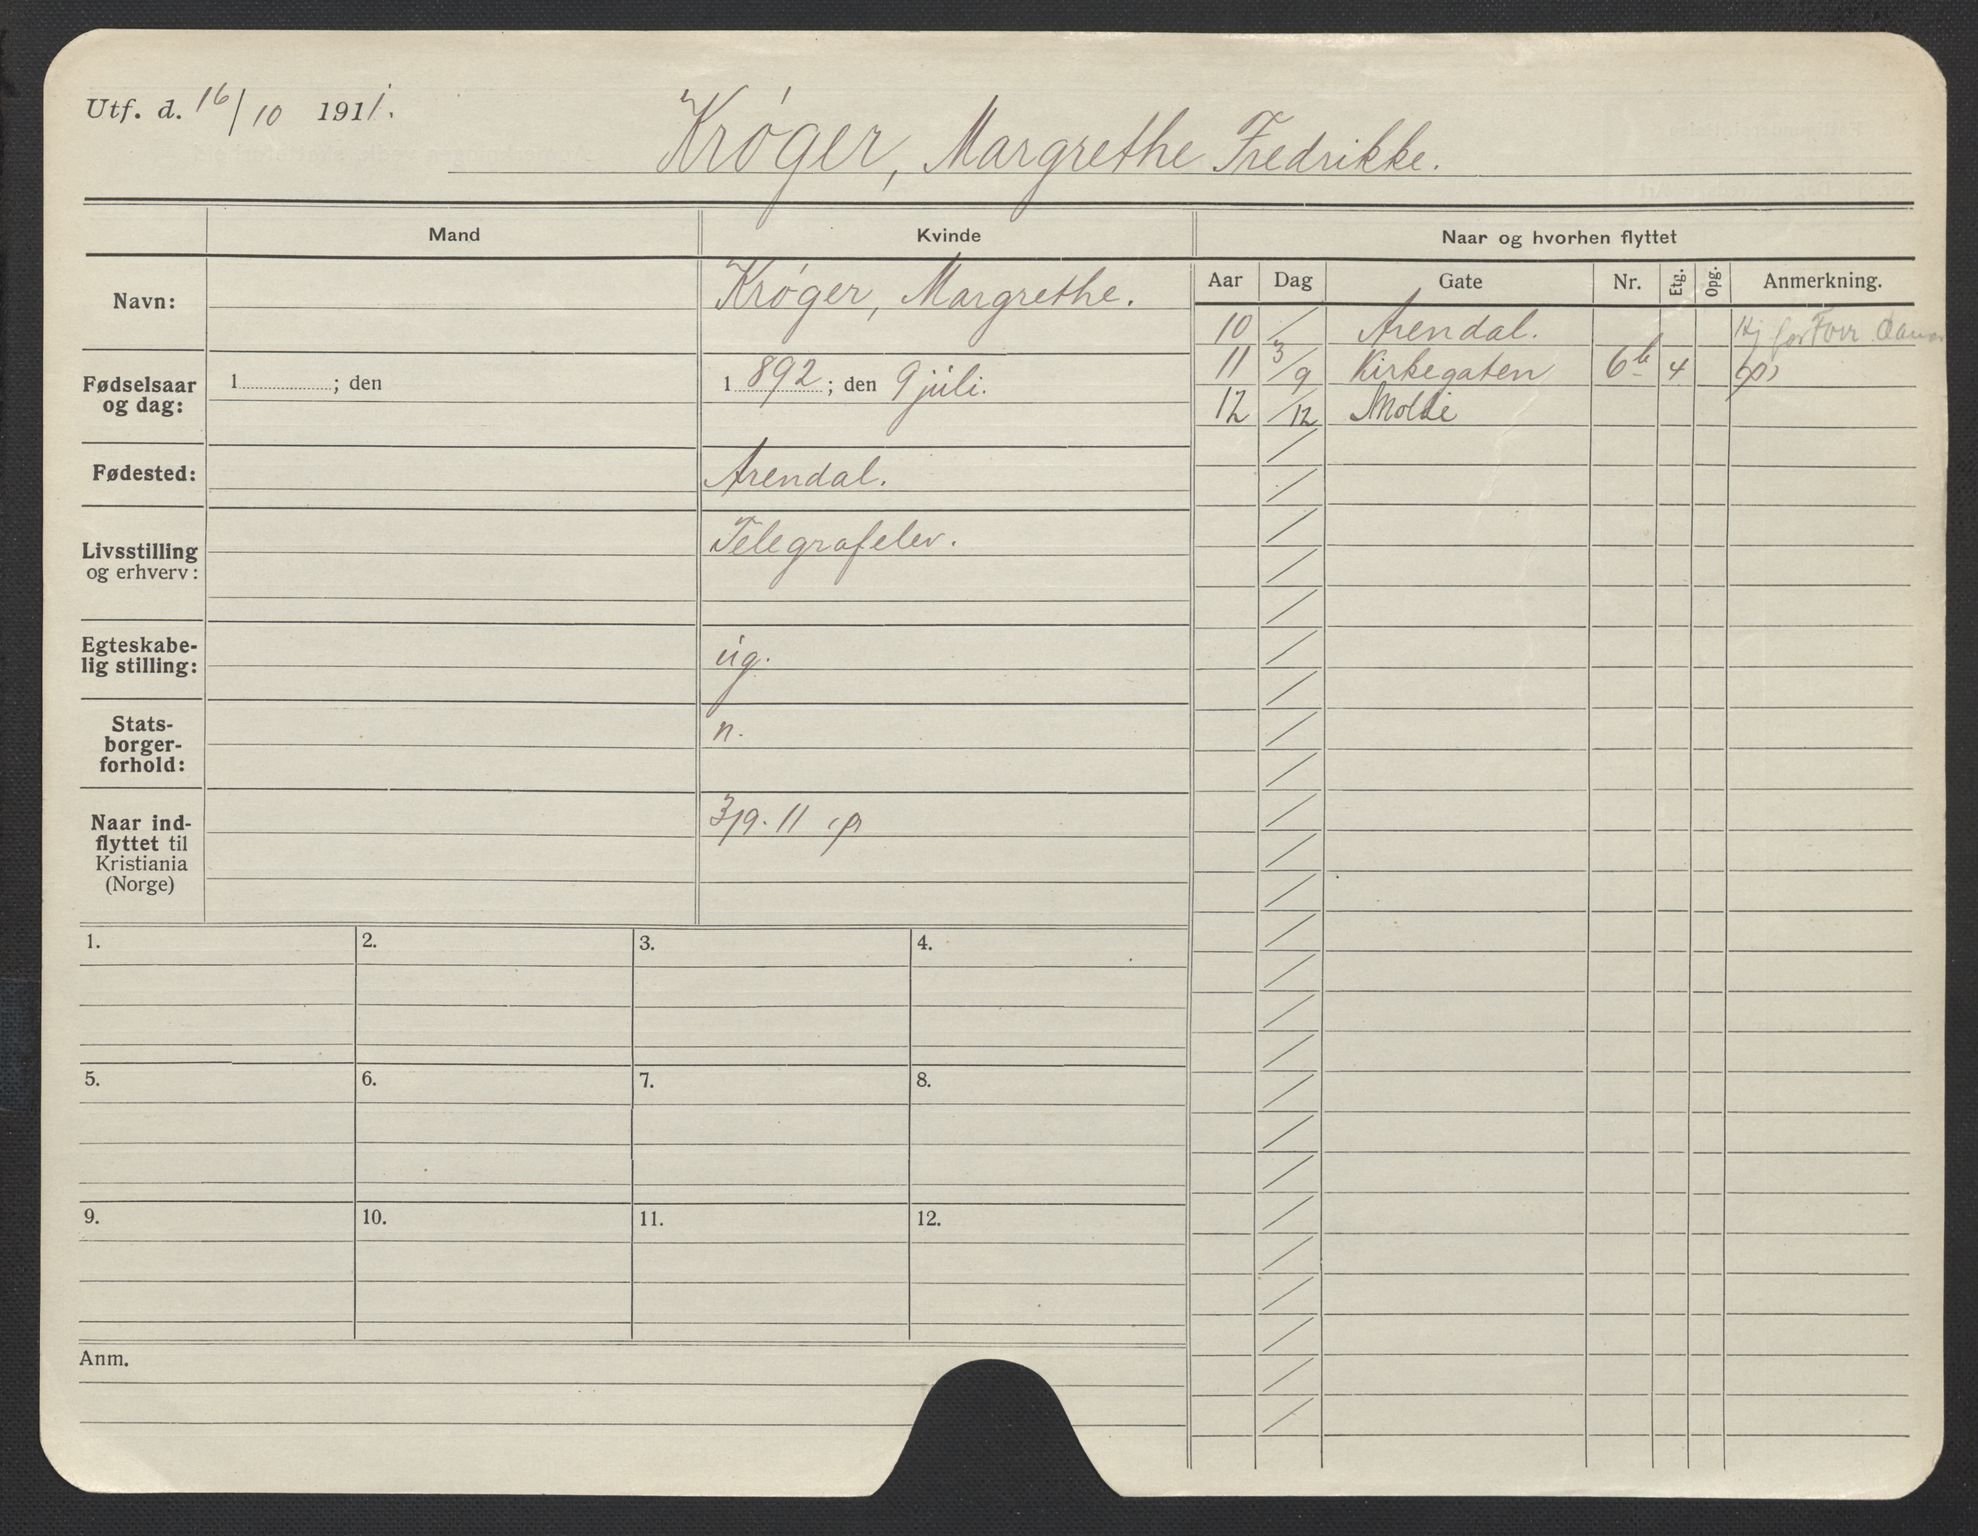 Utf. d. 16/10 1911.
Krøger, Margrethe Fredrikke.
Mand
Kvinde
Naar og hvorhen flyttet
Navn:
Krøger, Margrethe.
Fødselsaar og dag:
1 ; den
1 892 ; den 9 júli.
Fødested:
Arendal.
Livsstilling og erhverv:
Telegrafelev.
Egteskabe-
lig stilling:
úg.
Stats-
borger-
forhold:
n.
Naar ind-
flyttet til
Kristiania
(Norge)
3/9. 11
Aar Dag Gate Nr. Etg. Opg. Anmerkning.
10 / Arendal.
11 3/9 Kirkegaten 6b 4
12 /12 Molde
1. 2. 3. 4.
5. 6. 7. 8.
9. 10. 11. 12.
Anm.